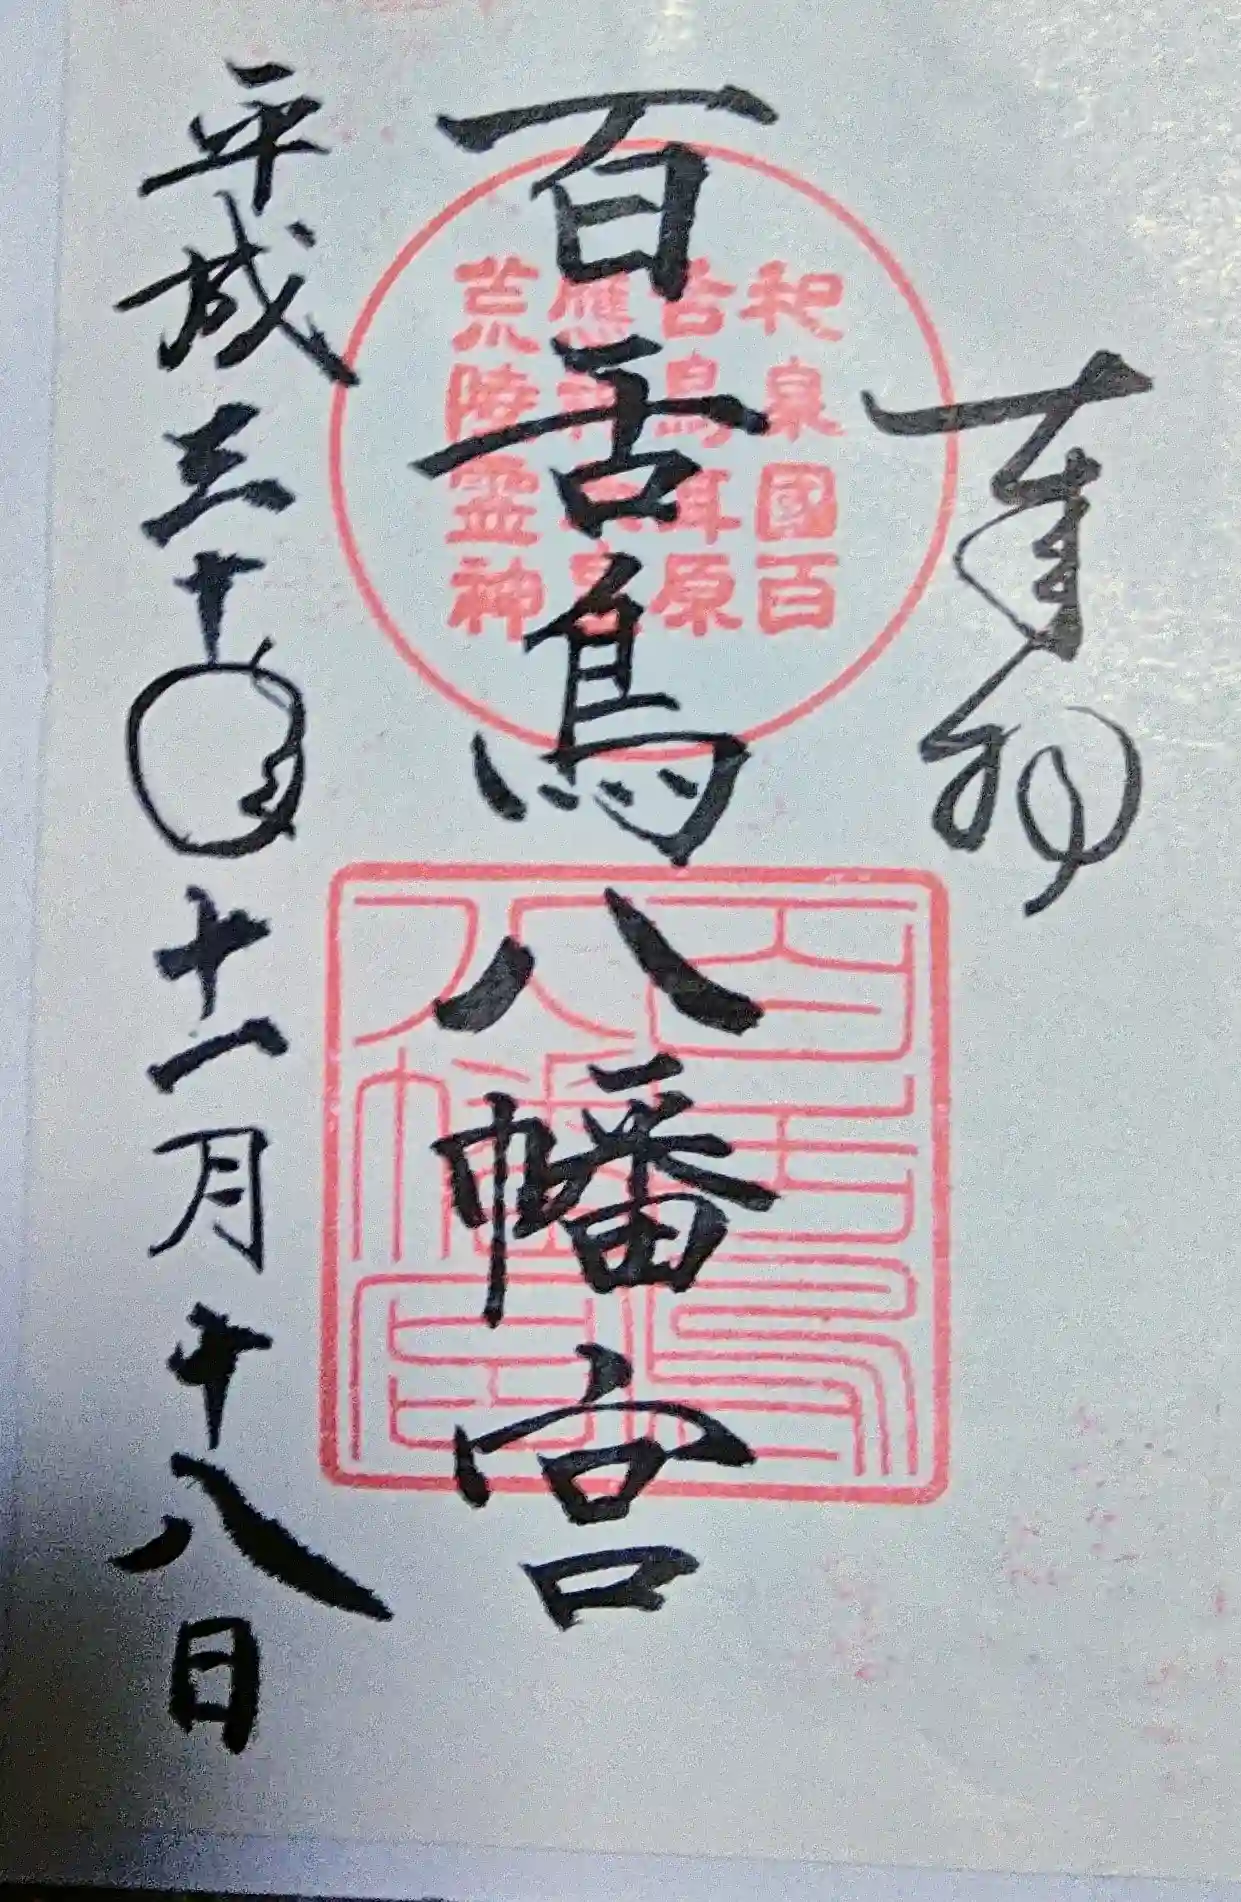 奉拝
百舌鳥八幡宮
平成三十年十一月十八日
和泉國百
舌鳥耳原
荒陵霊神
百舌鳥
八幡宮